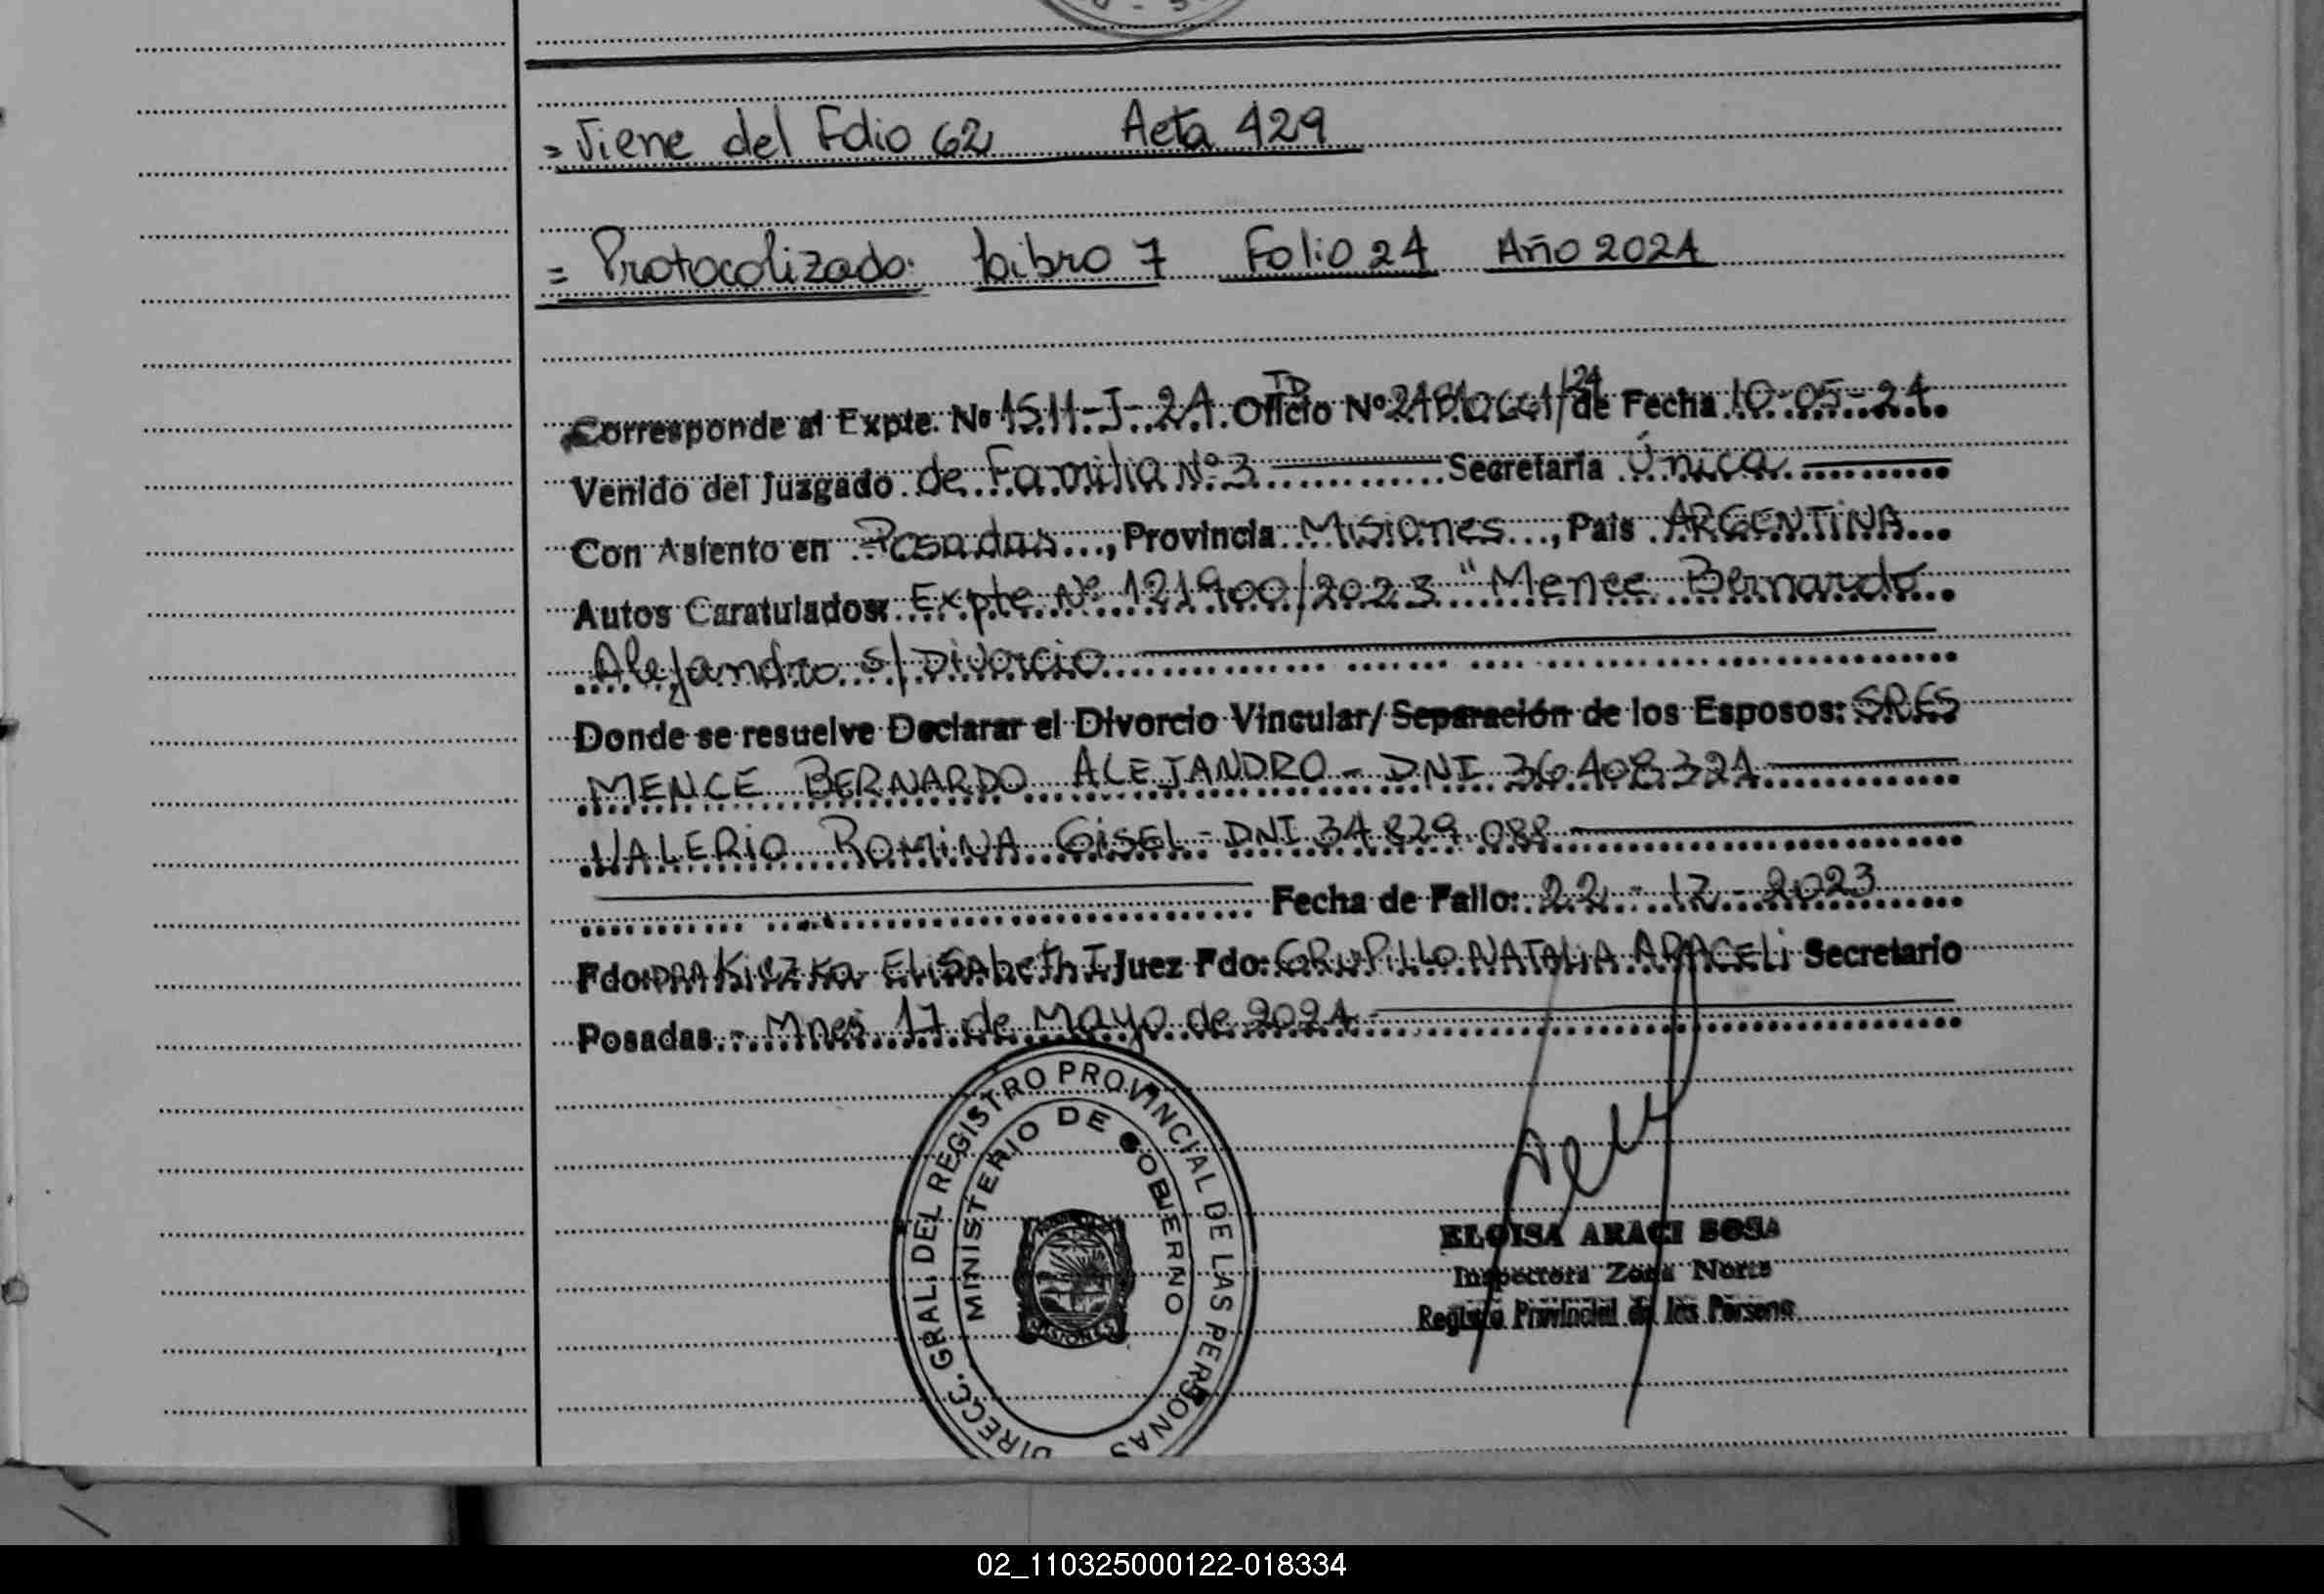 = Viene del Folio 62 Acta 429
= Protocolizado: Libro 7 Folio 24 Año 2024
Corresponde al Expte. Nº 1511-J-24. Oficio TD Nº 24810661/24 de Fecha 10-05-24
Venido del Juzgado de Familia Nº 3 Secretaría Única
Con Asiento en Posadas, Provincia Misiones, Pais ARGENTINA
Autos Caratulados: Expte Nº 121900/2023 "Mence Bernardo
Alejandro s/ Divorcio
Donde se resuelve Declarar el Divorcio Vincular/ Separación de los Esposos: SRES
MENCE BERNARDO ALEJANDRO - DNI 36.408.324
VALERIO ROMINA GISEL - DNI 34.829.088
Fecha de Fallo: 22 - 12 - 2023
Fdo: DRA Kiczka Elisabeth I Juez Fdo: GRUPILLO NATALIA ARACELI Secretario
Posadas.- Mnes 17 de Mayo de 2024
DIRECC. GRAL. DEL REGISTRO PROVINCIAL DE LAS PERSONAS
MINISTERIO DE GOBIERNO
MISIONES
ELOISA ARACI SOSA
Inspectora Zona Norte
Registro Provincial de las Persona
02_110325000122-018334